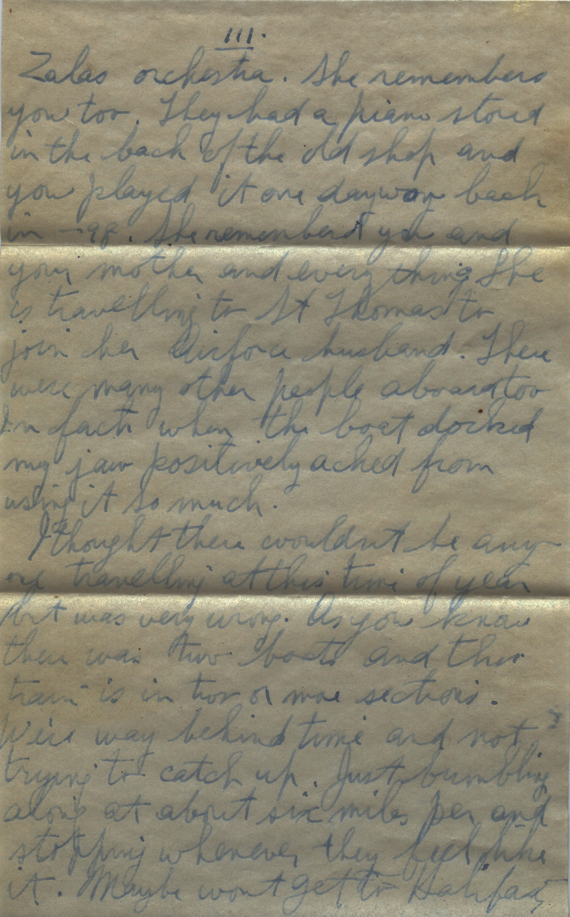 III.
Zalas orchestra. She remembers
you too. They had a piano stored
in the back of the old shop and
you played it one day way back
in -98. She remembers you and
your mother and everything. She
is travelling to St Thomas to
join her Airforce husband. There
were many other people aboard too
In fact when the boat docked
my jaw positively ached from
using it so much.
I thought there wouldn't be any-
one travelling at this time of year
but was very wrong. As you know
there was two boats and this
train is in two or more sections.
We're way behind time and not
trying to catch up. Just bumbling
along at about six miles per and
stopping whenever they feel like
it. Maybe wont get to Halifax